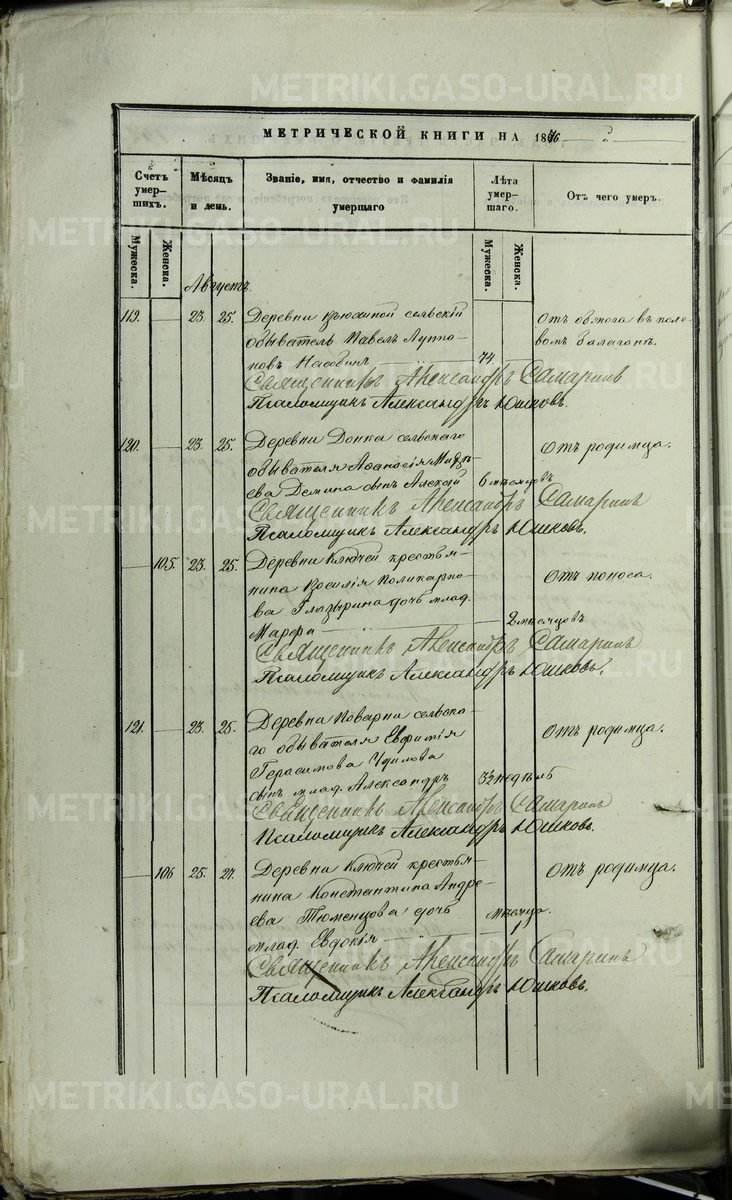 METRIKI.GASO-URAL.RU
МЕТРИЧЕСКОЙ КНИГИ НА 1876
Счетъ умер-шихъ.
Мѣсяцъ и день.
Званіе, имя, отчество и фамилія умершаго
Лѣта умер-шаго.
Отъ чего умеръ.
Мужеска.
Женска.
Мужеска.
Женска.
Августъ.
119. 23. 25. Деревни сельскій Отъ обжога въ поле-
обыватель Павелъ Луппо- вомъ балаганѣ.
новъ 74
Священникъ Александръ Самаринъ
Псаломщикъ Александръ Юшковъ.
120. 23. 25. Деревни Донка сельскаго Отъ родимца.
обывателя Аѳанасія
ева Демина сынъ Алексѣй 6 мѣсяцовъ
Священникъ Александръ Самаринъ
Псаломщикъ Александръ Юшковъ.
105. 23. 25. Деревни Ключей крестья- Отъ поноса.
нина Василія Поликарпо-
ва Глазырина дочь млад.
Марѳа 2 мѣсяцовъ
Священникъ Александръ Самаринъ
Псаломщикъ Александръ Юшковъ.
121. 23. 25. Деревни Поварни сельска- Отъ родимца.
го обывателя Евфимія
Герасимова
сынъ млад. Александръ недѣль
Священникъ Александръ Самаринъ
Псаломщикъ Александръ Юшковъ.
106 25. 27. Деревни Ключей крестья- Отъ родимца.
нина Константина Андре-
ева Тюменцова дочь мѣсяца.
млад. Евдокія
Священникъ Александръ Самаринъ
Псаломщикъ Александръ Юшковъ.
METRIKI.GASO-URAL.RU